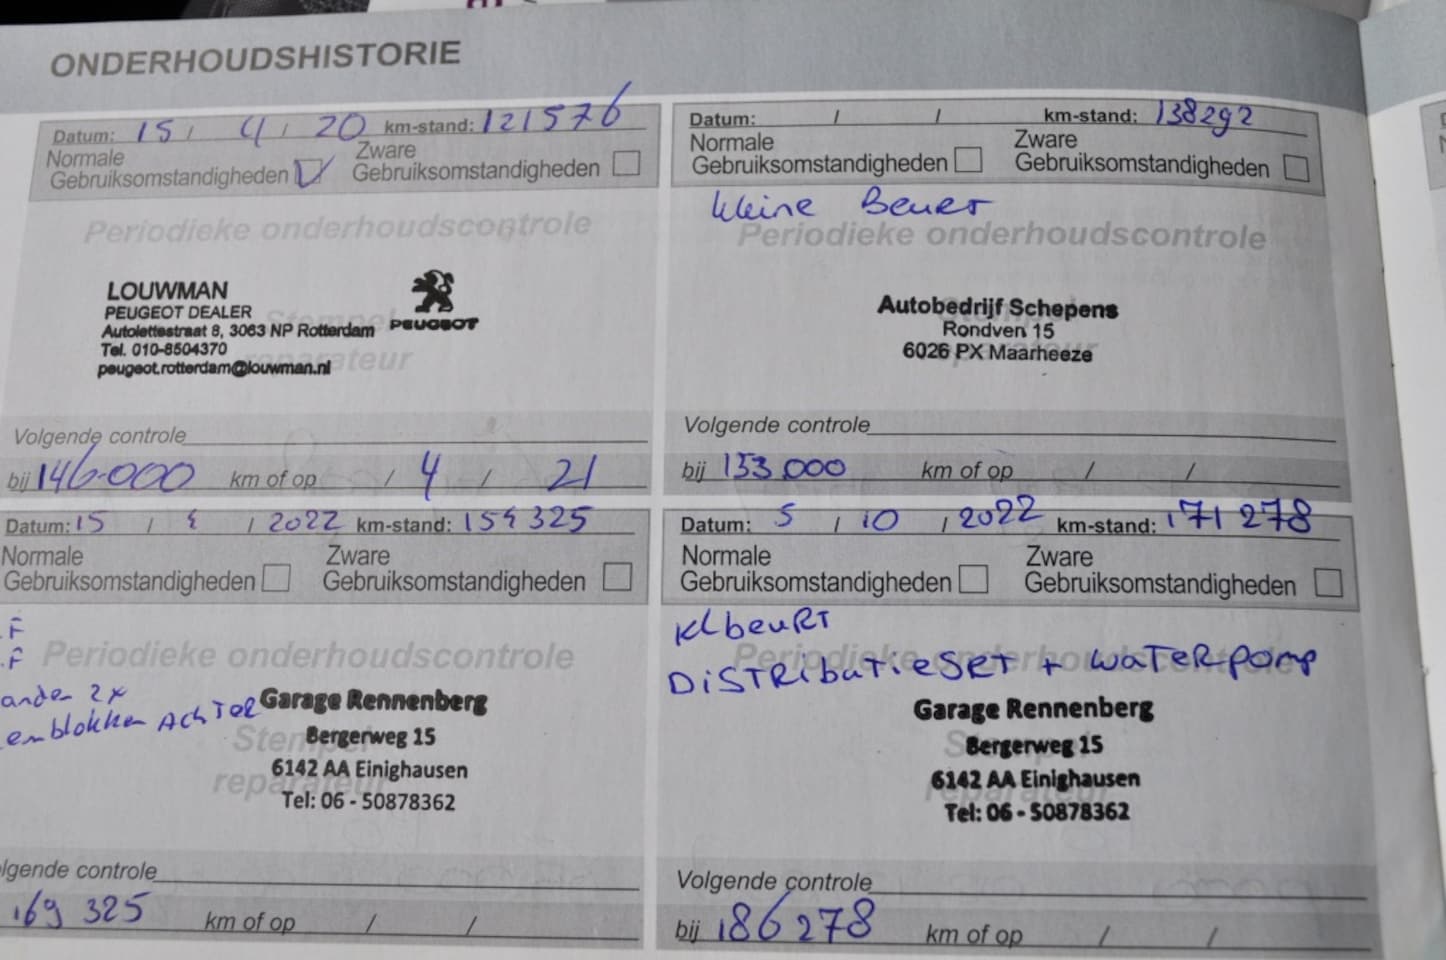 ONDERHOUDSHISTORIE
Datum: 15 / 4 / 20 km-stand: 121576
Normale Gebruiksomstandigheden Zware Gebruiksomstandigheden
Periodieke onderhoudscontrole
LOUWMAN
PEUGEOT DEALER
Autolettestraat 8, 3063 NP Rotterdam
Tel. 010-8504370
peugeot.rotterdam@louwman.nl
PEUGEOT
Stempel
reparateur
Volgende controle
bij 146.000 km of op / 4 / 21
Datum: / / km-stand: 138292
Normale Gebruiksomstandigheden Zware Gebruiksomstandigheden
kleine Beurt
Periodieke onderhoudscontrole
Autobedrijf Schepens
Rondven 15
6026 PX Maarheeze
Volgende controle
bij 153.000 km of op / /
Datum: 15 / 4 / 2022 km-stand: 154325
Normale Gebruiksomstandigheden Zware Gebruiksomstandigheden
.F
.F
Periodieke onderhoudscontrole
anden 2x
emblokken AchTER
Garage Rennenberg
Bergerweg 15
6142 AA Einighausen
Tel: 06 - 50878362
Stempel
reparateur
lgende controle
169 325 km of op / /
Datum: 5 / 10 / 2022 km-stand: 171 278
Normale Gebruiksomstandigheden Zware Gebruiksomstandigheden
KLbeuRT
DiSTRibuTieSET + waTERpomp
Periodieke onderhoudscontrole
Garage Rennenberg
Bergerweg 15
6142 AA Einighausen
Tel: 06 - 50878362
Volgende controle
bij 186278 km of op / /